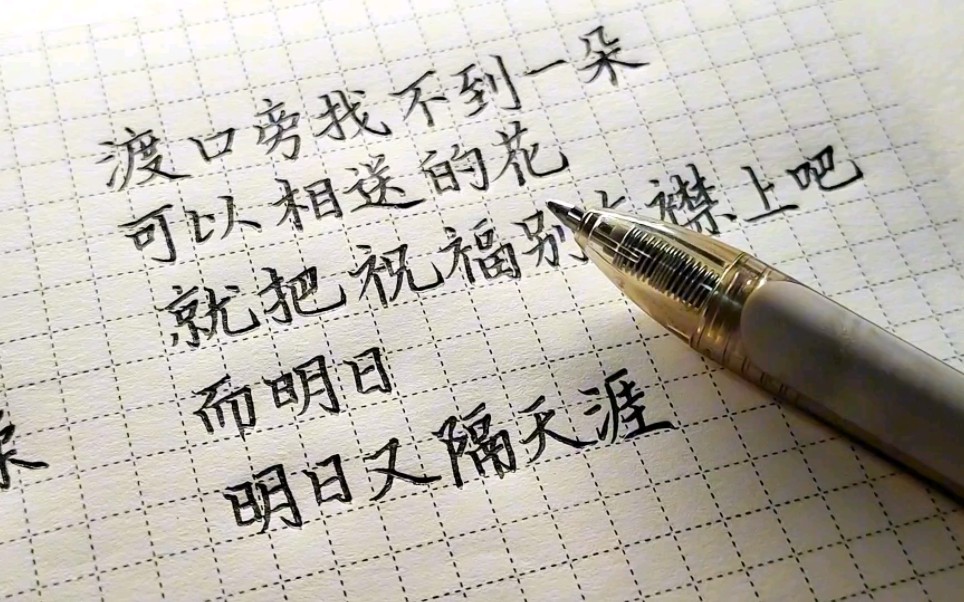 渡口旁找不到一朵
可以相送的花
就把祝福别襟上吧
而明日
明日又隔天涯